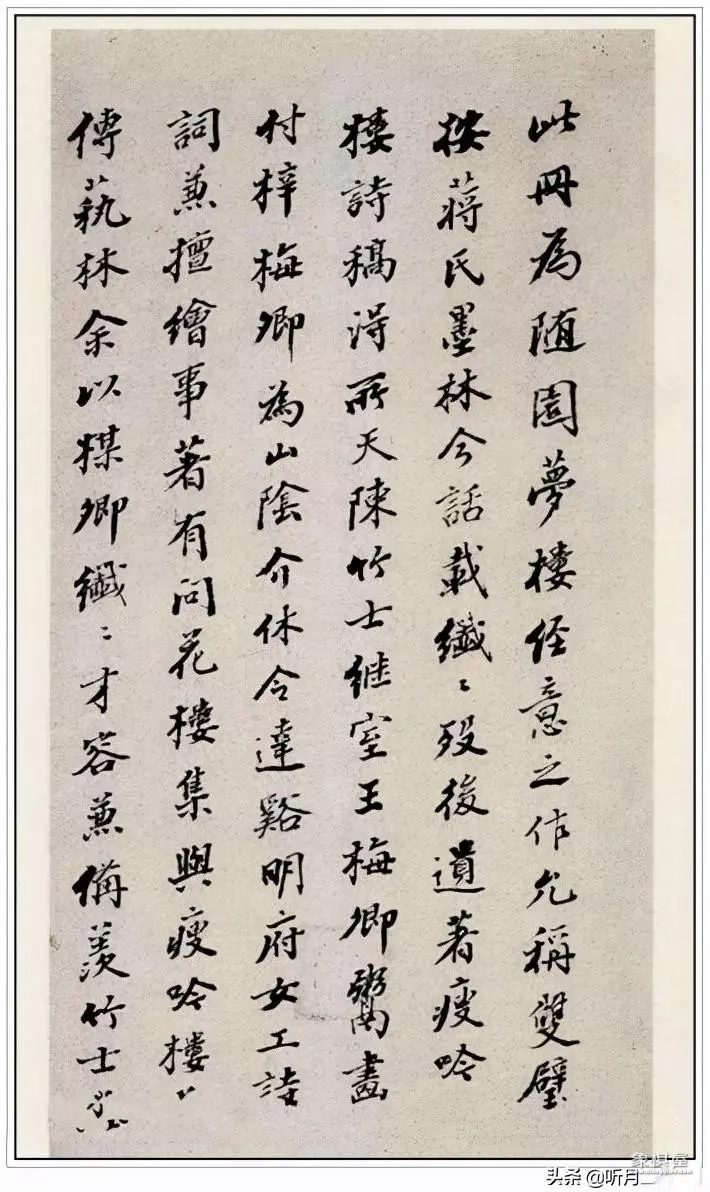 此冊為随園夢樓经意之作允稱雙璧
按蔣氏墨林今話載纖〻歿後遺著瘦吟
樓詩稿淂所天陳竹士继室王梅卿鬻畫
付梓梅卿為山陰介休令達谿明府女工詩
詞兼擅繪事著有问花樓集與瘦吟樓
傳蓺林余以楳卿纖〻才容兼備羨竹士
象棋屋
头条 @听月二